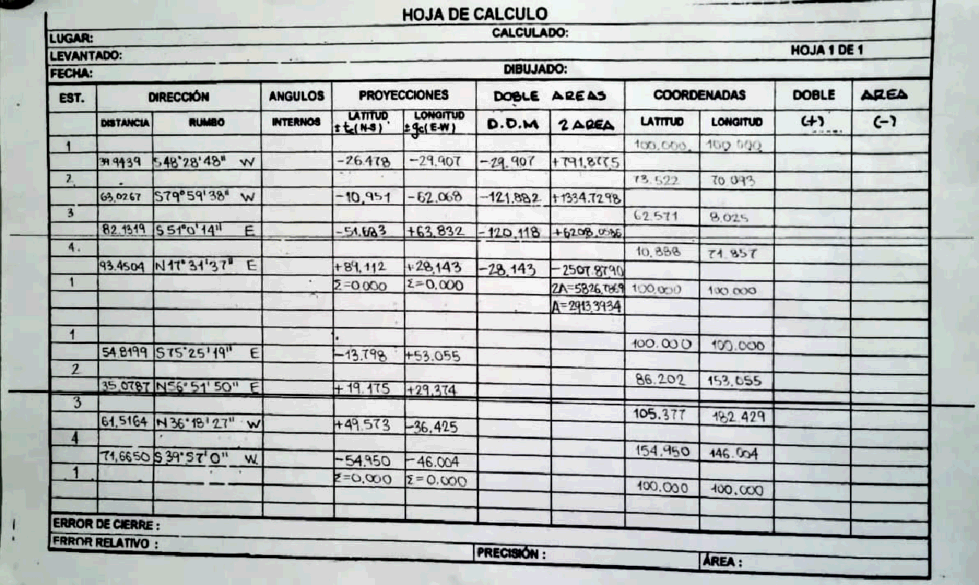 HOJA DE CALCULO
LUGAR: CALCULADO:
LEVANTADO: HOJA 1 DE 1
FECHA: DIBUJADO:
EST. DIRECCIÓN ANGULOS PROYECCIONES DOBLE AREAS COORDENADAS DOBLE AREA
DISTANCIA RUMBO INTERNOS LATITUD LONGITUD D.D.M 2 AREA LATITUD LONGITUD (+) (-)
(N-S) (E-W)
1 100.000 100.000
39.9439 S48°28'48" W -26.478 -29.907 -29.907 +791.8775
2 73.522 70.093
63.0267 S79°59'38" W -10,951 -62.068 -121.882 +1334.7298
3 62.571 8.025
82.1319 S51°0'14" E -51.683 +63,832 -120.118
4. 10.888 71.857
93.4504 N17°31'37" E +89,112 +28,143 -28,143 -2507.8790
1 Σ=0,000 Σ=0,000 2A=5826.7869 100,000 100.000
A=2913.3934
1 100.000 100.000
54.8199 S75°25'19" E -13.798 +53.055
2 86.202 153.055
35.0787 N56°51'50" E +19.175 +29,374
3 105.377 182.429
61,5164 N36°18'27" W +49.573 -36.425
4 154.950 146.004
71,6650 S39°57'0" W. -54.950 -46.004
1 Σ=0,000 Σ=0.000 100.000 100.000
ERROR DE CIERRE :
ERROR RELATIVO : PRECISIÓN : ÁREA :